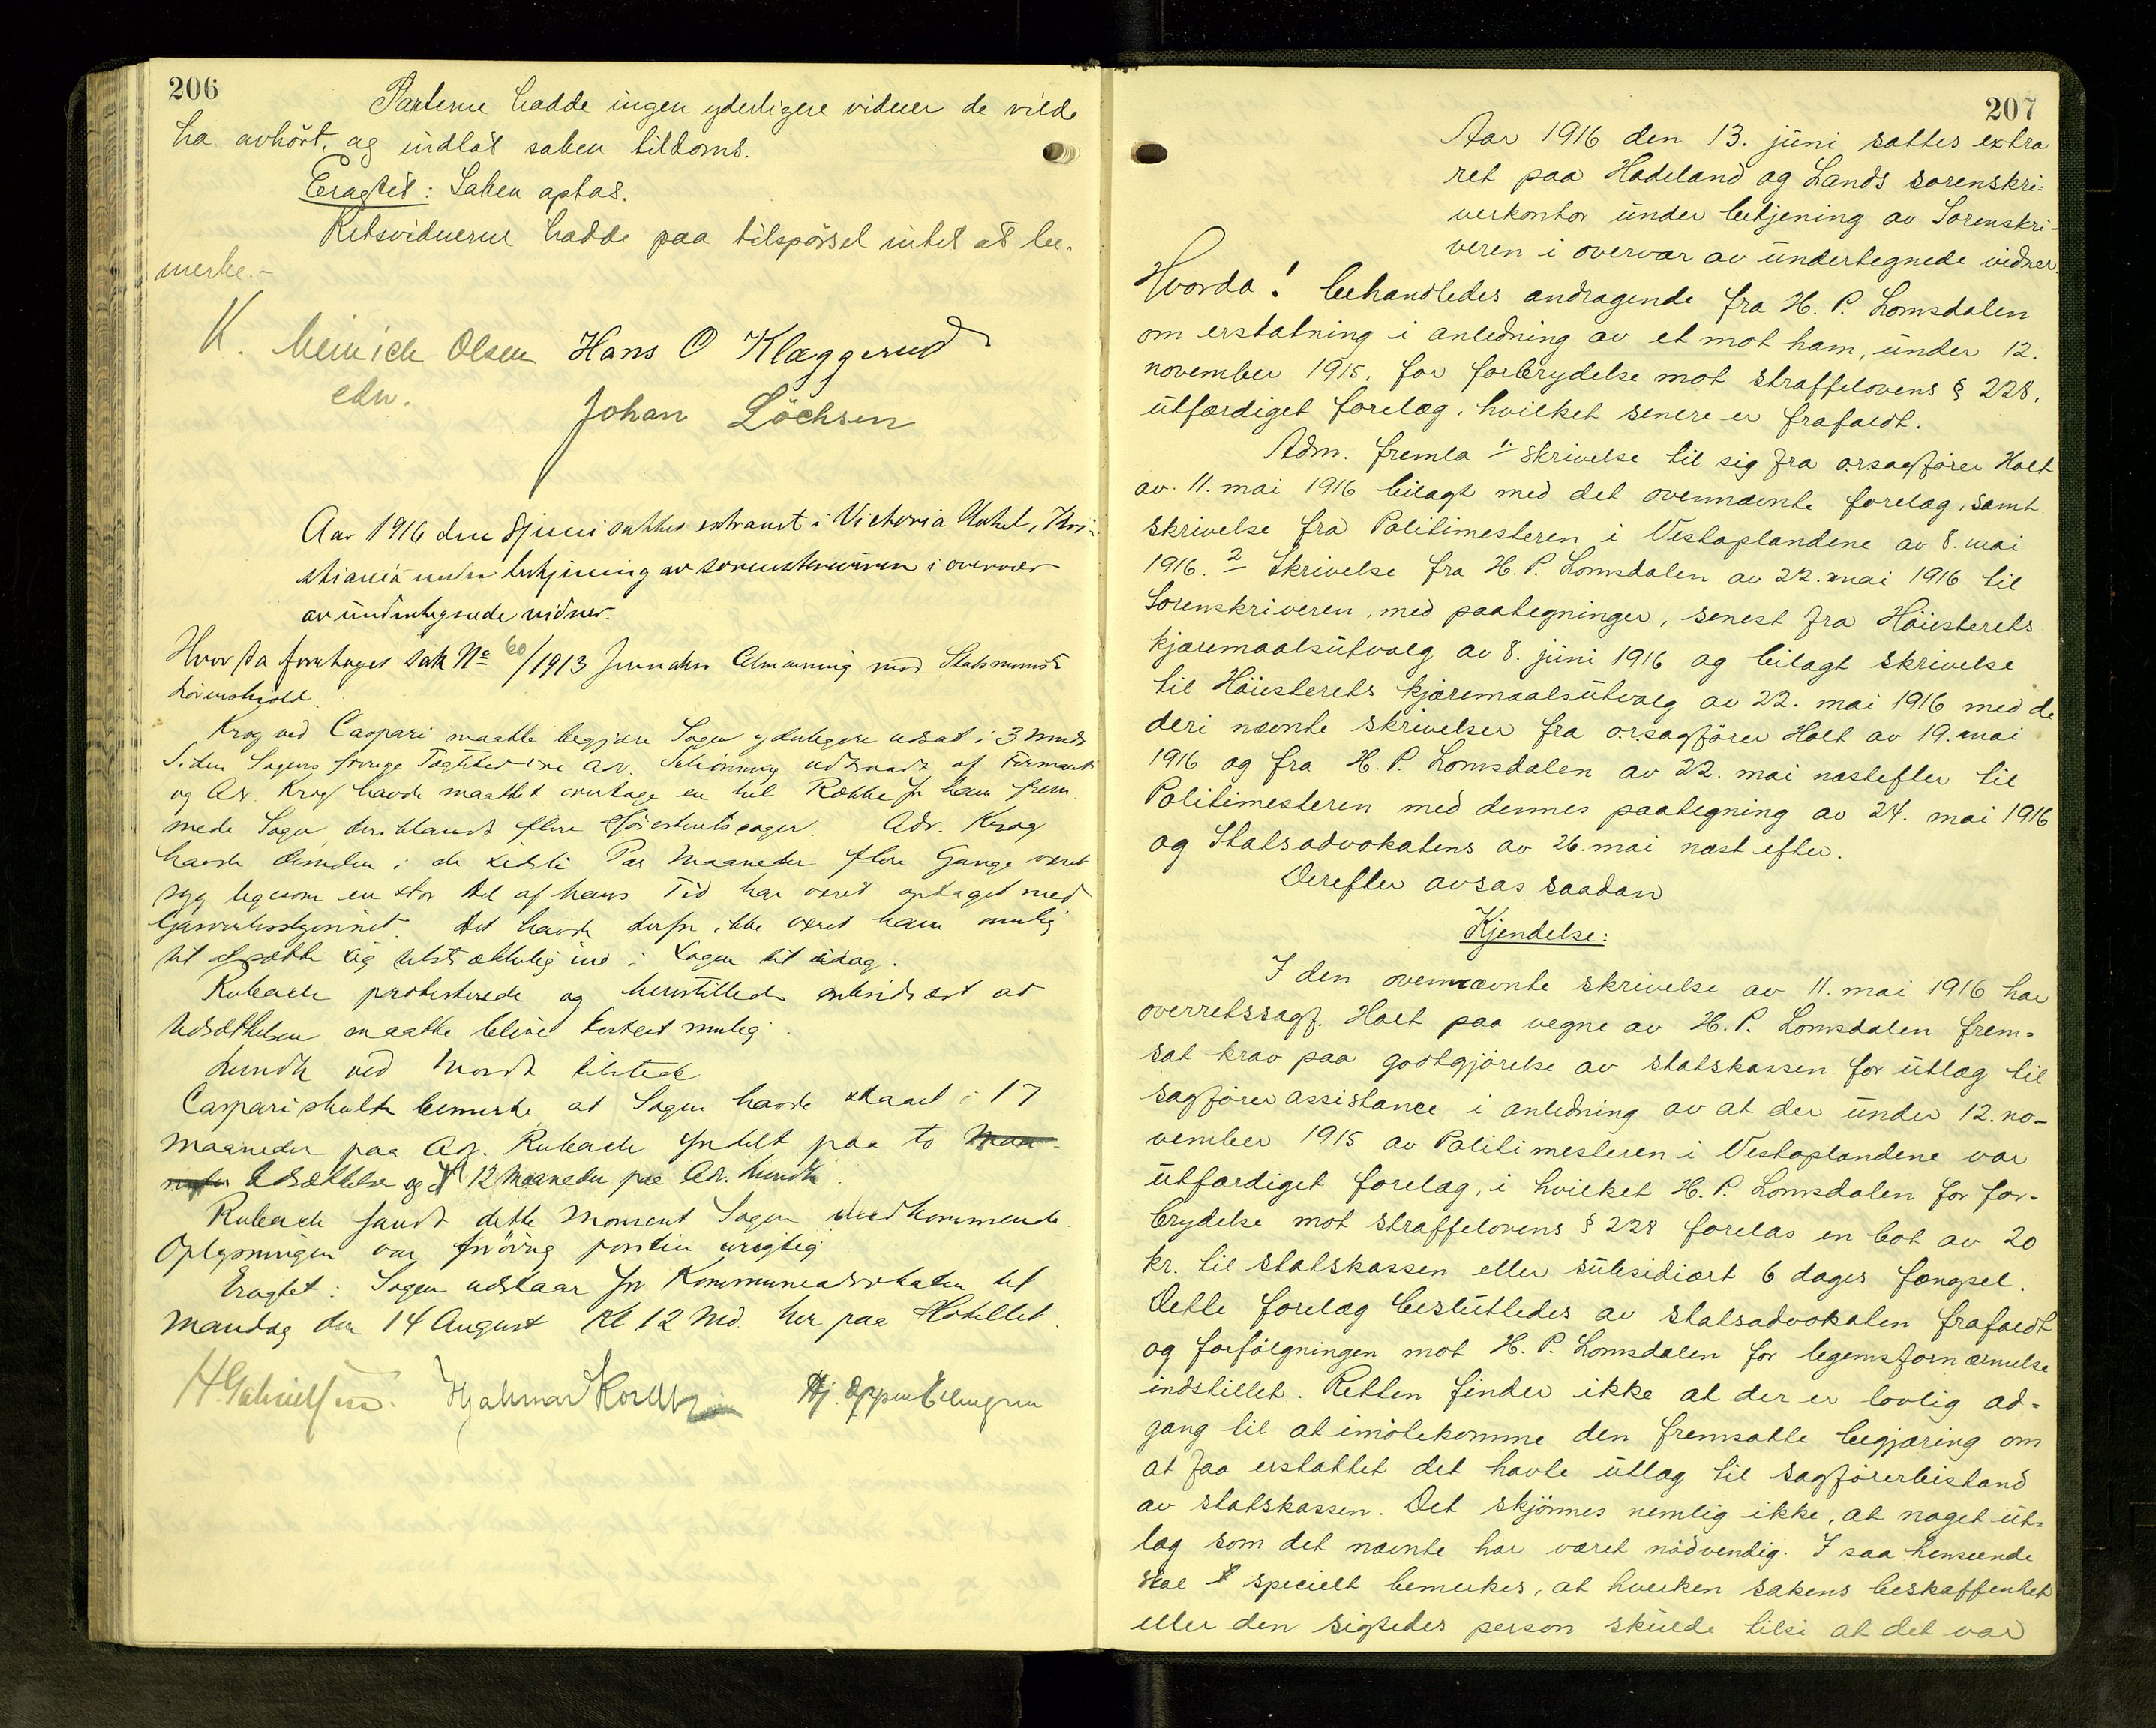 206
Parterne hadde ingen yderligere vidner de vilde
ha avhört, og indlot saken tildoms.
Eragtet: Saken optas.
Retsvidnerne hadde paa tilspörsel intet at be-
merke.-
K. Meinich Olsen Hans O Klæggerud
edw. Johan Löchsen
Aar 1916 den 8 juni sattes extraret i Victoria Hotel, Kri-
stiania under betjening av sorenskriveren i overvær
av undertegnede vidner.
Hvorda foretoges sak No 60/1913 Jevnaker Almenning mod Statsminist
Løvenskiold.
Krog ved Caspari maatte begjære Sagen yderligere udsat i 3 Mnds
Siden Sagens forrige Tægtedag Adv. Schönning udtraadt af Firmaet
og Adv. Krog havde maattet overtage en hel Række for ham frem
mede Sager, deriblandt flere Höiesteretssager. Adv. Krog
havde desuden i de sidste Par Maaneder flere Gange været
syg ligesom en stor Del af hans Tid har været optaget med
. Det havde derfor ikke været ham mulig
at sætte sig tilstrækkelig ind i Sagen til idag.
Rubach protesterede og henstillede subsidiært at
Udsættelsen maatte blive kortest mulig.
Lundh ved tilstede
Caspari skulde bemerke at Sagen havde staaet i 17
Maaneder paa Adv. Rubach fordelt paa to Maa-
neder Udsættelse og 12 Maaneder paa Adv. Lundh.
Rubach fandt dette Moment Sagen uvedkommende.
Oplysningen var forövrig positiv urigtig
Eragtet: Sagen udstaar for Kommuneadvokaten til
Mandag den 14 August Kl 12 Md. her paa Hotellet.
Hjalmar Hj. Oppen
207
Aar 1916 den 13. juni sattes extra
ret paa Hadeland og Lands sorenskri-
verkontor under betjening av Sorenskri-
veren i overvær av undertegnede vidner.
Hvorda! behandledes andragende fra H. P. Lomsdalen
om erstatning i anledning av et mot ham, under 12.
november 1915, for forbrydelse mot straffelovens § 228,
utfærdiget forelæg, hvilket senere er frafaldt.
Adm. fremla 1 skrivelse til sig fra o.r.sagförer Holt
av 11. mai 1916 bilagt med det ovennævnte forelæg, samt
skrivelse fra Politimesteren i Vestoplandene av 8. mai
1916. 2 Skrivelse fra H. P. Lomsdalen av 22. mai 1916 til
Sorenskriveren, med paategninger, senest fra Höiesterets
kjæremaalsutvalg av 8. juni 1916 og bilagt skrivelse
til Höiesterets kjæremaalsutvalg av 22. mai 1916 med de
deri nævnte skrivelser fra o.r.sagförer Holt av 19. mai
1916 og fra H. P. Lomsdalen av 22. mai næstefter til
Politimesteren med dennes paategning av 24. mai 1916
og Statsadvokatens av 26. mai næst efter.
Derefter avsas saadan
Kjendelse:
I den ovennævnte skrivelse av 11. mai 1916 har
overretssagf. Holt paa vegne av H. P. Lomsdalen frem-
sat krav paa godtgjörelse av statskassen for utlæg til
sagförer assistance i anledning av at der under 12. no-
vember 1915 av Politimesteren i Vestoplandene var
utfærdiget forelæg, i hvilket H. P. Lomsdalen for for-
brydelse mot straffelovens § 228 forelas en bot av 20
kr. til statskassen eller subsidiært 6 dages fængsel.
Dette forelæg besluttedes av statsadvokaten frafaldt
og forfölgningen mot H. P. Lomsdalen for legemsfornærmelse
indstillet. Retten finder ikke at der er lovlig ad-
gang til at imötekomme den fremsatte begjæring om
at faa erstattet det havte utlæg til sagförerbistand
av statskassen. Det skjönnes nemlig ikke, at noget ut-
læg som det nævnte har været nödvendig. I saa henseende
skal specielt bemerkes, at hverken sakens beskaffenhet
eller den sigtedes person skulde tilsi at det var